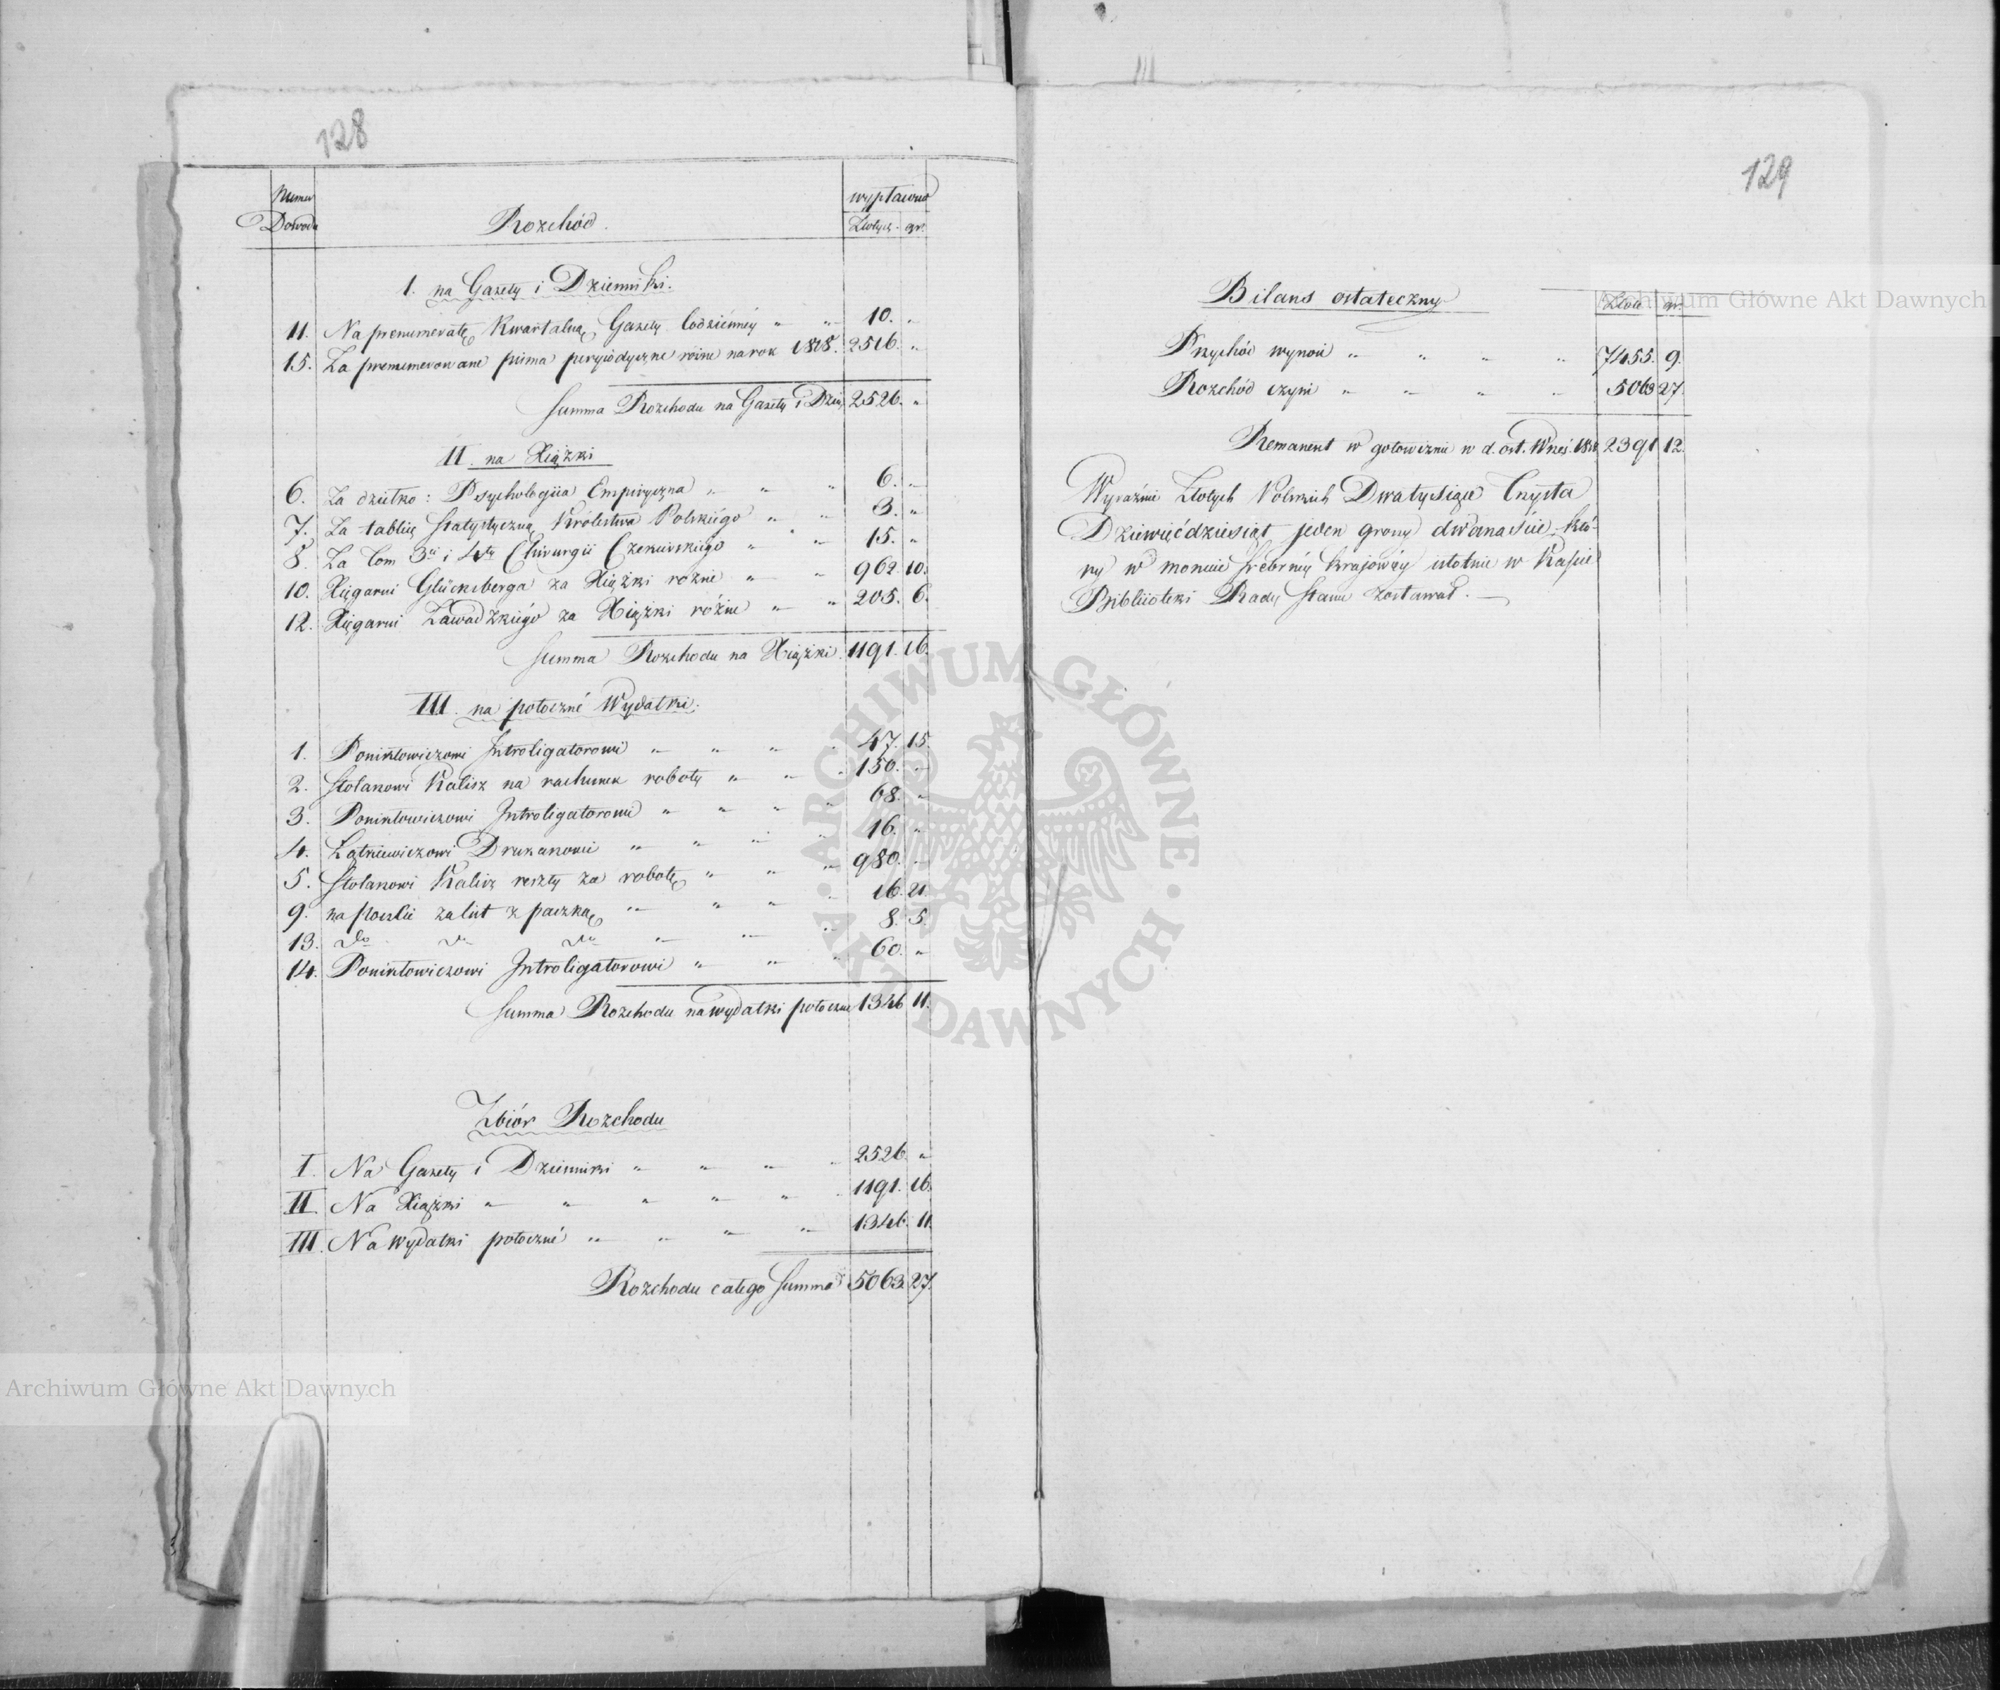 128
Numer wypłacono
Dowodu Rozchód. Złotych. gr.
I. na Gazety i Dzienniki.
11. Na prenumeratę Kwartalną Gazety Codziénnéy " " 10. "
15. Za prenumerowane pisma peryiodyczne różne na rok 1818. 2516. "
Summa Rozchodu na Gazety i Dzien 2526. "
II. na Xiążki
6. Za dziełko: Psychologiia Empiryczna " " " 6. "
7. Za tablicę Statystyczną Królestwa Polskiégo " " 3. "
8. Za Tom 3ci i 4ty Chirurgii Czekierskiego " " 15. "
10. Xięgarni Glücksberga za Xiążki różne " " 962. 10.
12. Xięgarni Zawadzkiégo za Xiążki różne " " 205. 6.
Summa Rozchodu na Xiążki. 1191. 16.
III. na potoczné Wydatki.
1. Poniatowiczowi Introligatorowi " " " " 47. 15.
2. Stolarzowi Kalisz na rachunek roboty " " " 150. "
3. Introligatorowi " " " " 68. "
4. Drukarzowi " " " " 16. "
5. Stolarzowi Kalisz reszty za robotę " " " 980. "
9. na Poczcie za list z paczką " " " " 16. 21.
13. do do do " " " 8. 5.
14. Introligatorowi " " " 60. "
Summa Rozchodu na wydatki potoczne 1346 11.
Zbiór Rozchodu
I. Na Gazety i Dzienniki " " " " 2526. "
II. Na Xiążki " " " " " " 1191. 16.
III. Na wydatki potoczné " " " " 1346. 11.
Rozchodu całego Summa 5063. 27.
129
Bilans ostateczny
Złote. gr.
Przychód wynosi " " " " 7455. 9.
Rozchód czyni " " " " 5063 27.
Remanent w gotowiznie w d. ost. Wrześ. 2391 12.
Wyraźnie Złotych Polskich Dwatysiące Trzysta
Dziewięćdziesiąt jeden groszy dwanaście któ-
ry w monecie Srebrnéy Krajowéy istotnie w Kassie
Biblioteki Rady Stanu zostawał.
Archiwum Główne Akt Dawnych
Archiwum Główne Akt Dawnych
ARCHIWUM GŁÓWNE AKT DAWNYCH